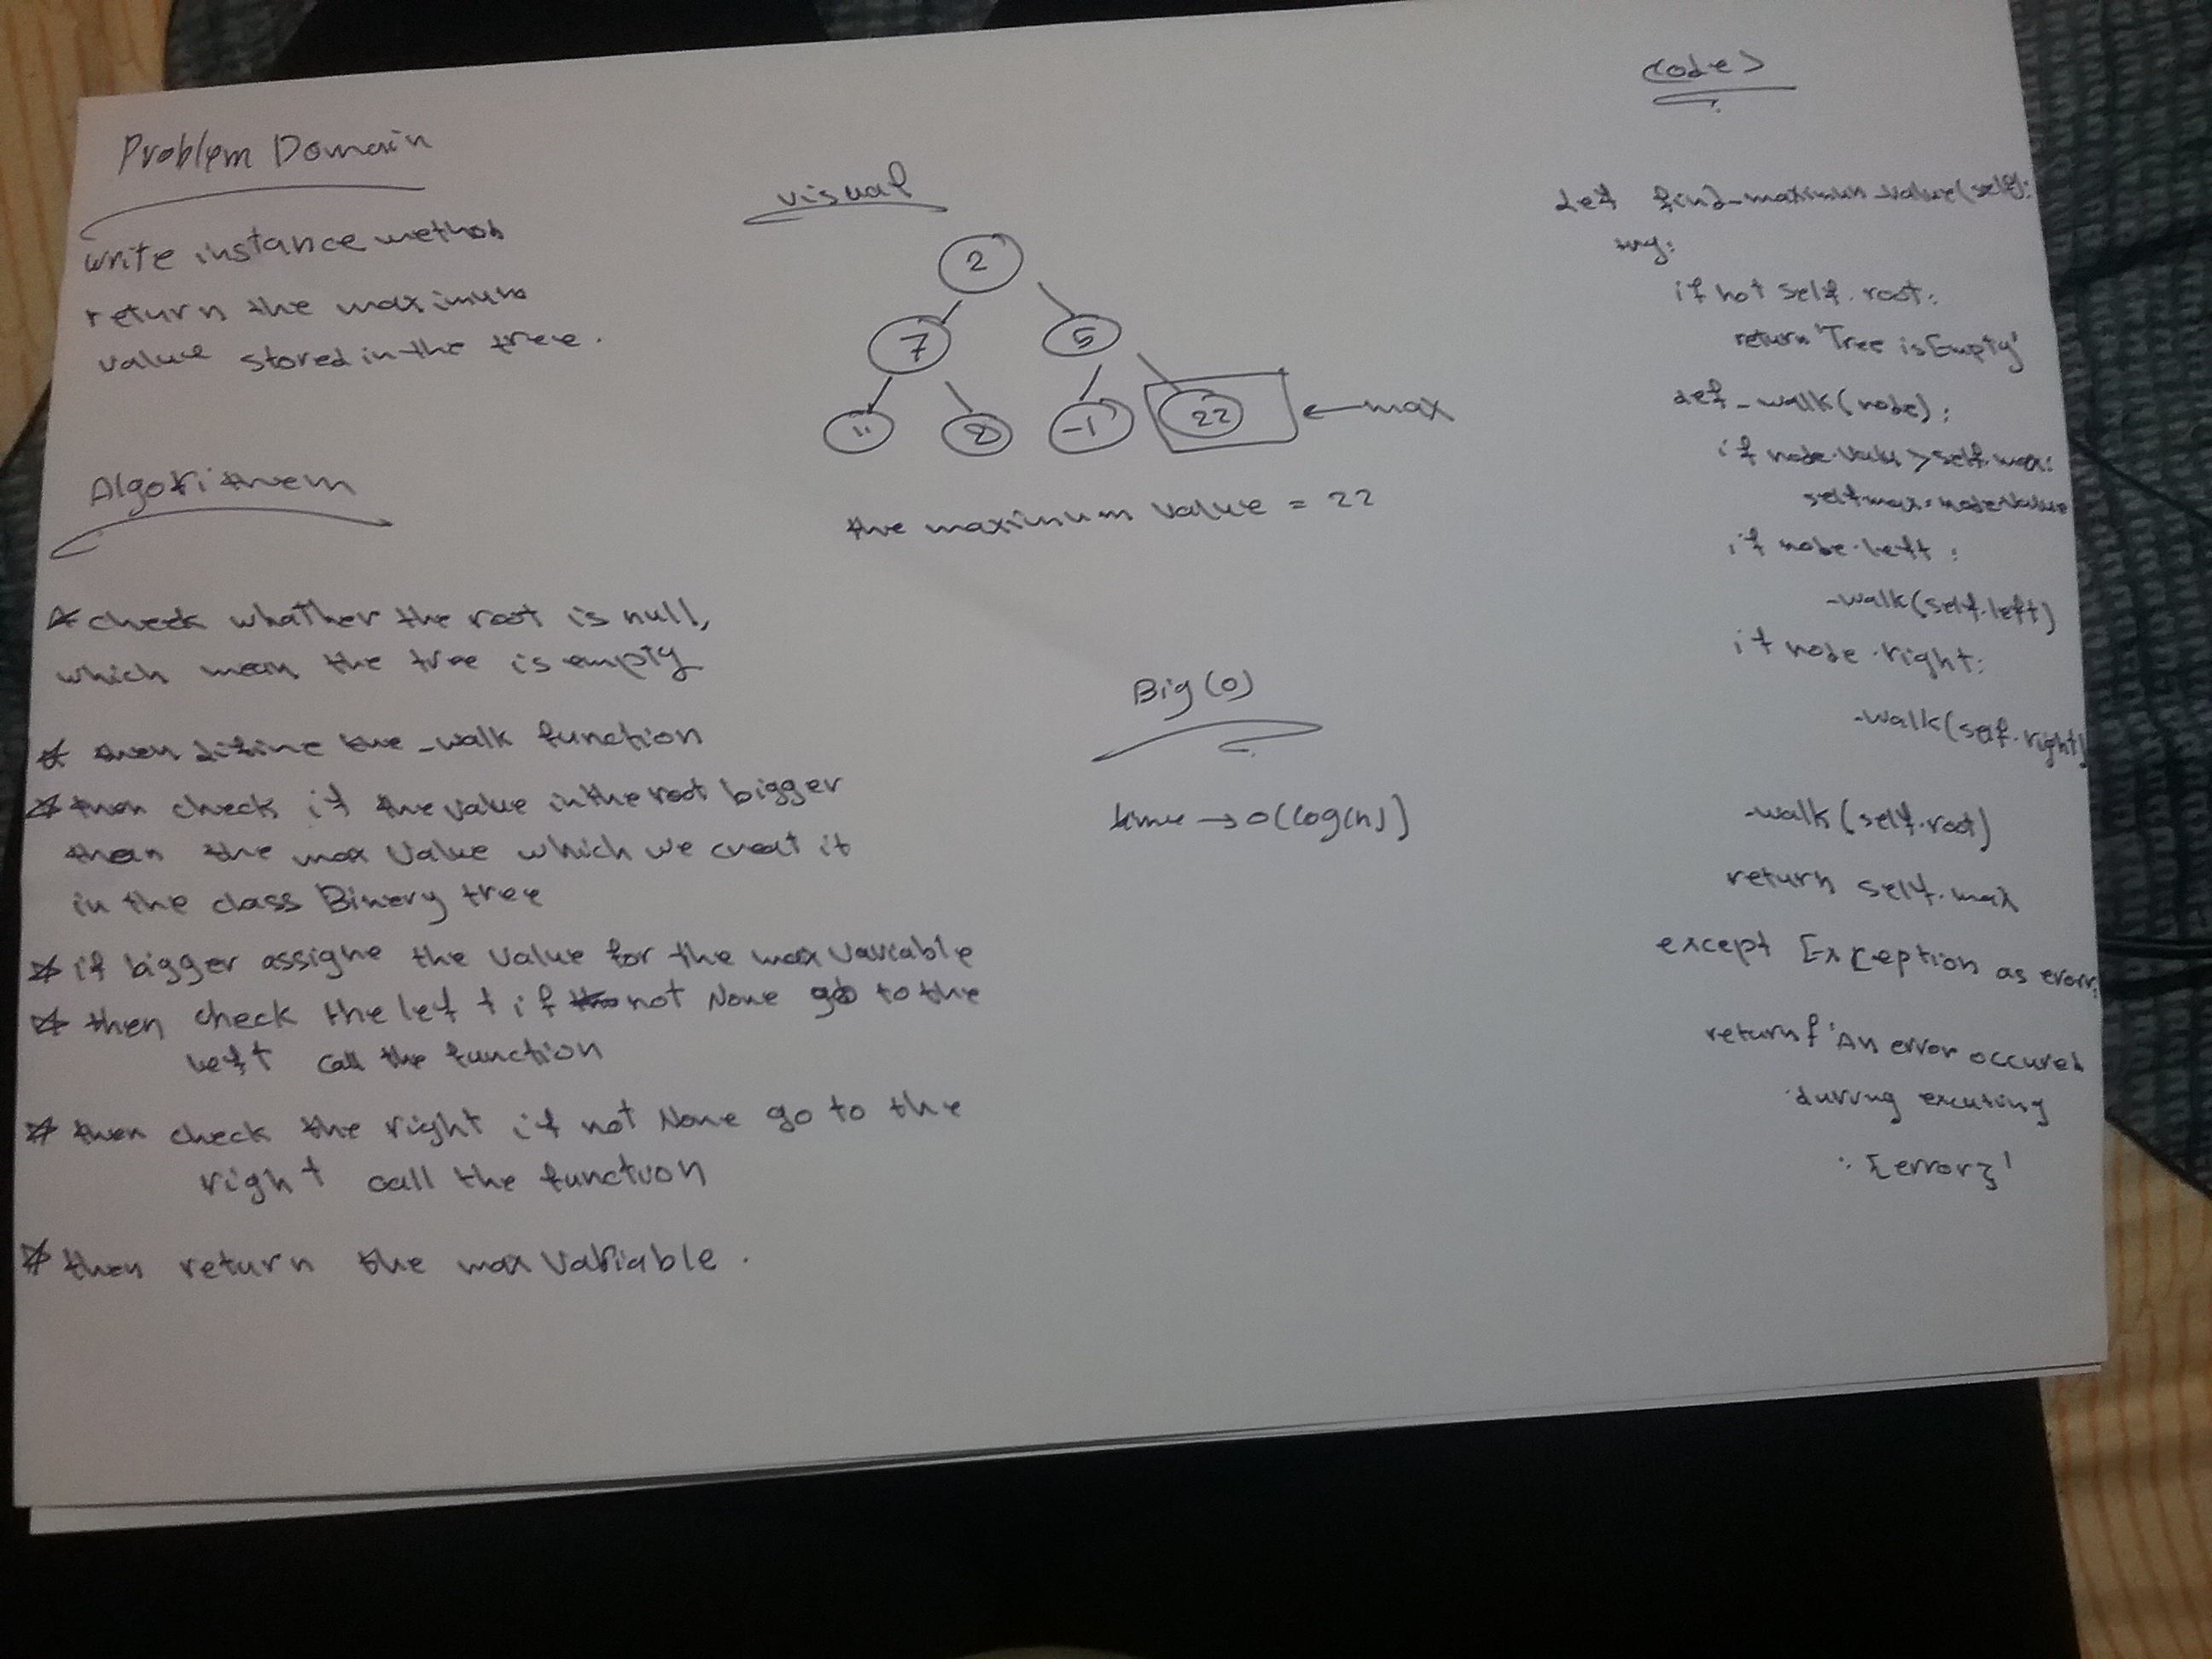 Problem Domain
write instance method
return the maximum
value stored in the tree.
Algorithem
* check whather the root is null,
which mean the tree is empty
* then difine the _walk function
* then check if the value in the root bigger
than the max value which we creat it
in the class Binary tree
* if bigger assigne the value for the max variable
* then check the left if not None go to the
left call the function
* then check the right if not None go to the
right call the function
* then return the max variable.
visual
2
7 5
11 8 -1 22 ← max
the maximum value = 22
Big(O)
time → O(log(n))
code>
def find_maximum_value(self):
try:
if not self.root:
return 'Tree is Empty'
def _walk(node):
if node.value > self.max:
self.max = node.value
if node.left:
_walk(self.left)
if node.right:
_walk(self.right)
_walk(self.root)
return self.max
except Exception as error:
return f'An error occured
during excuting
: {error}'